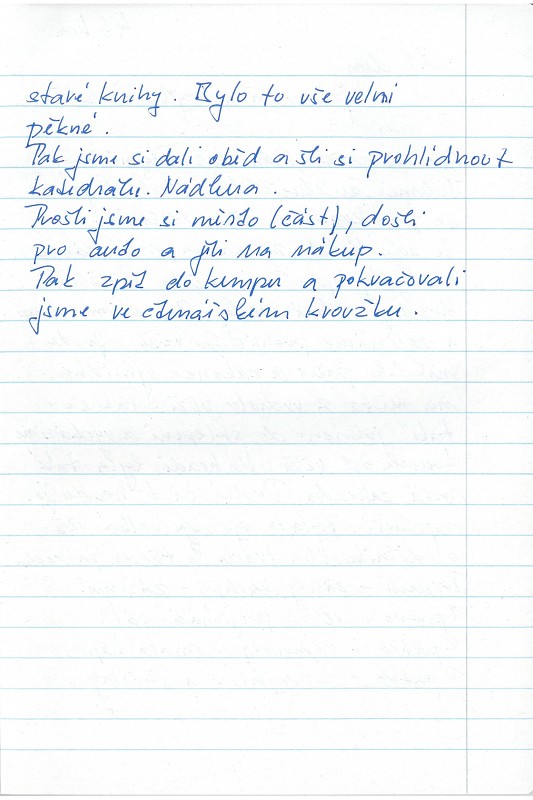 staré knihy. Bylo to vše velmi
pěkné.
Pak jsme si dali oběd a šli si prohlídnout
katedrálu. Nádhera.
Prošli jsme si město (část), došli
pro auto a jeli na nákup.
Pak zpět do kempu a pokračovali
jsme ve čtenářském kroužku.